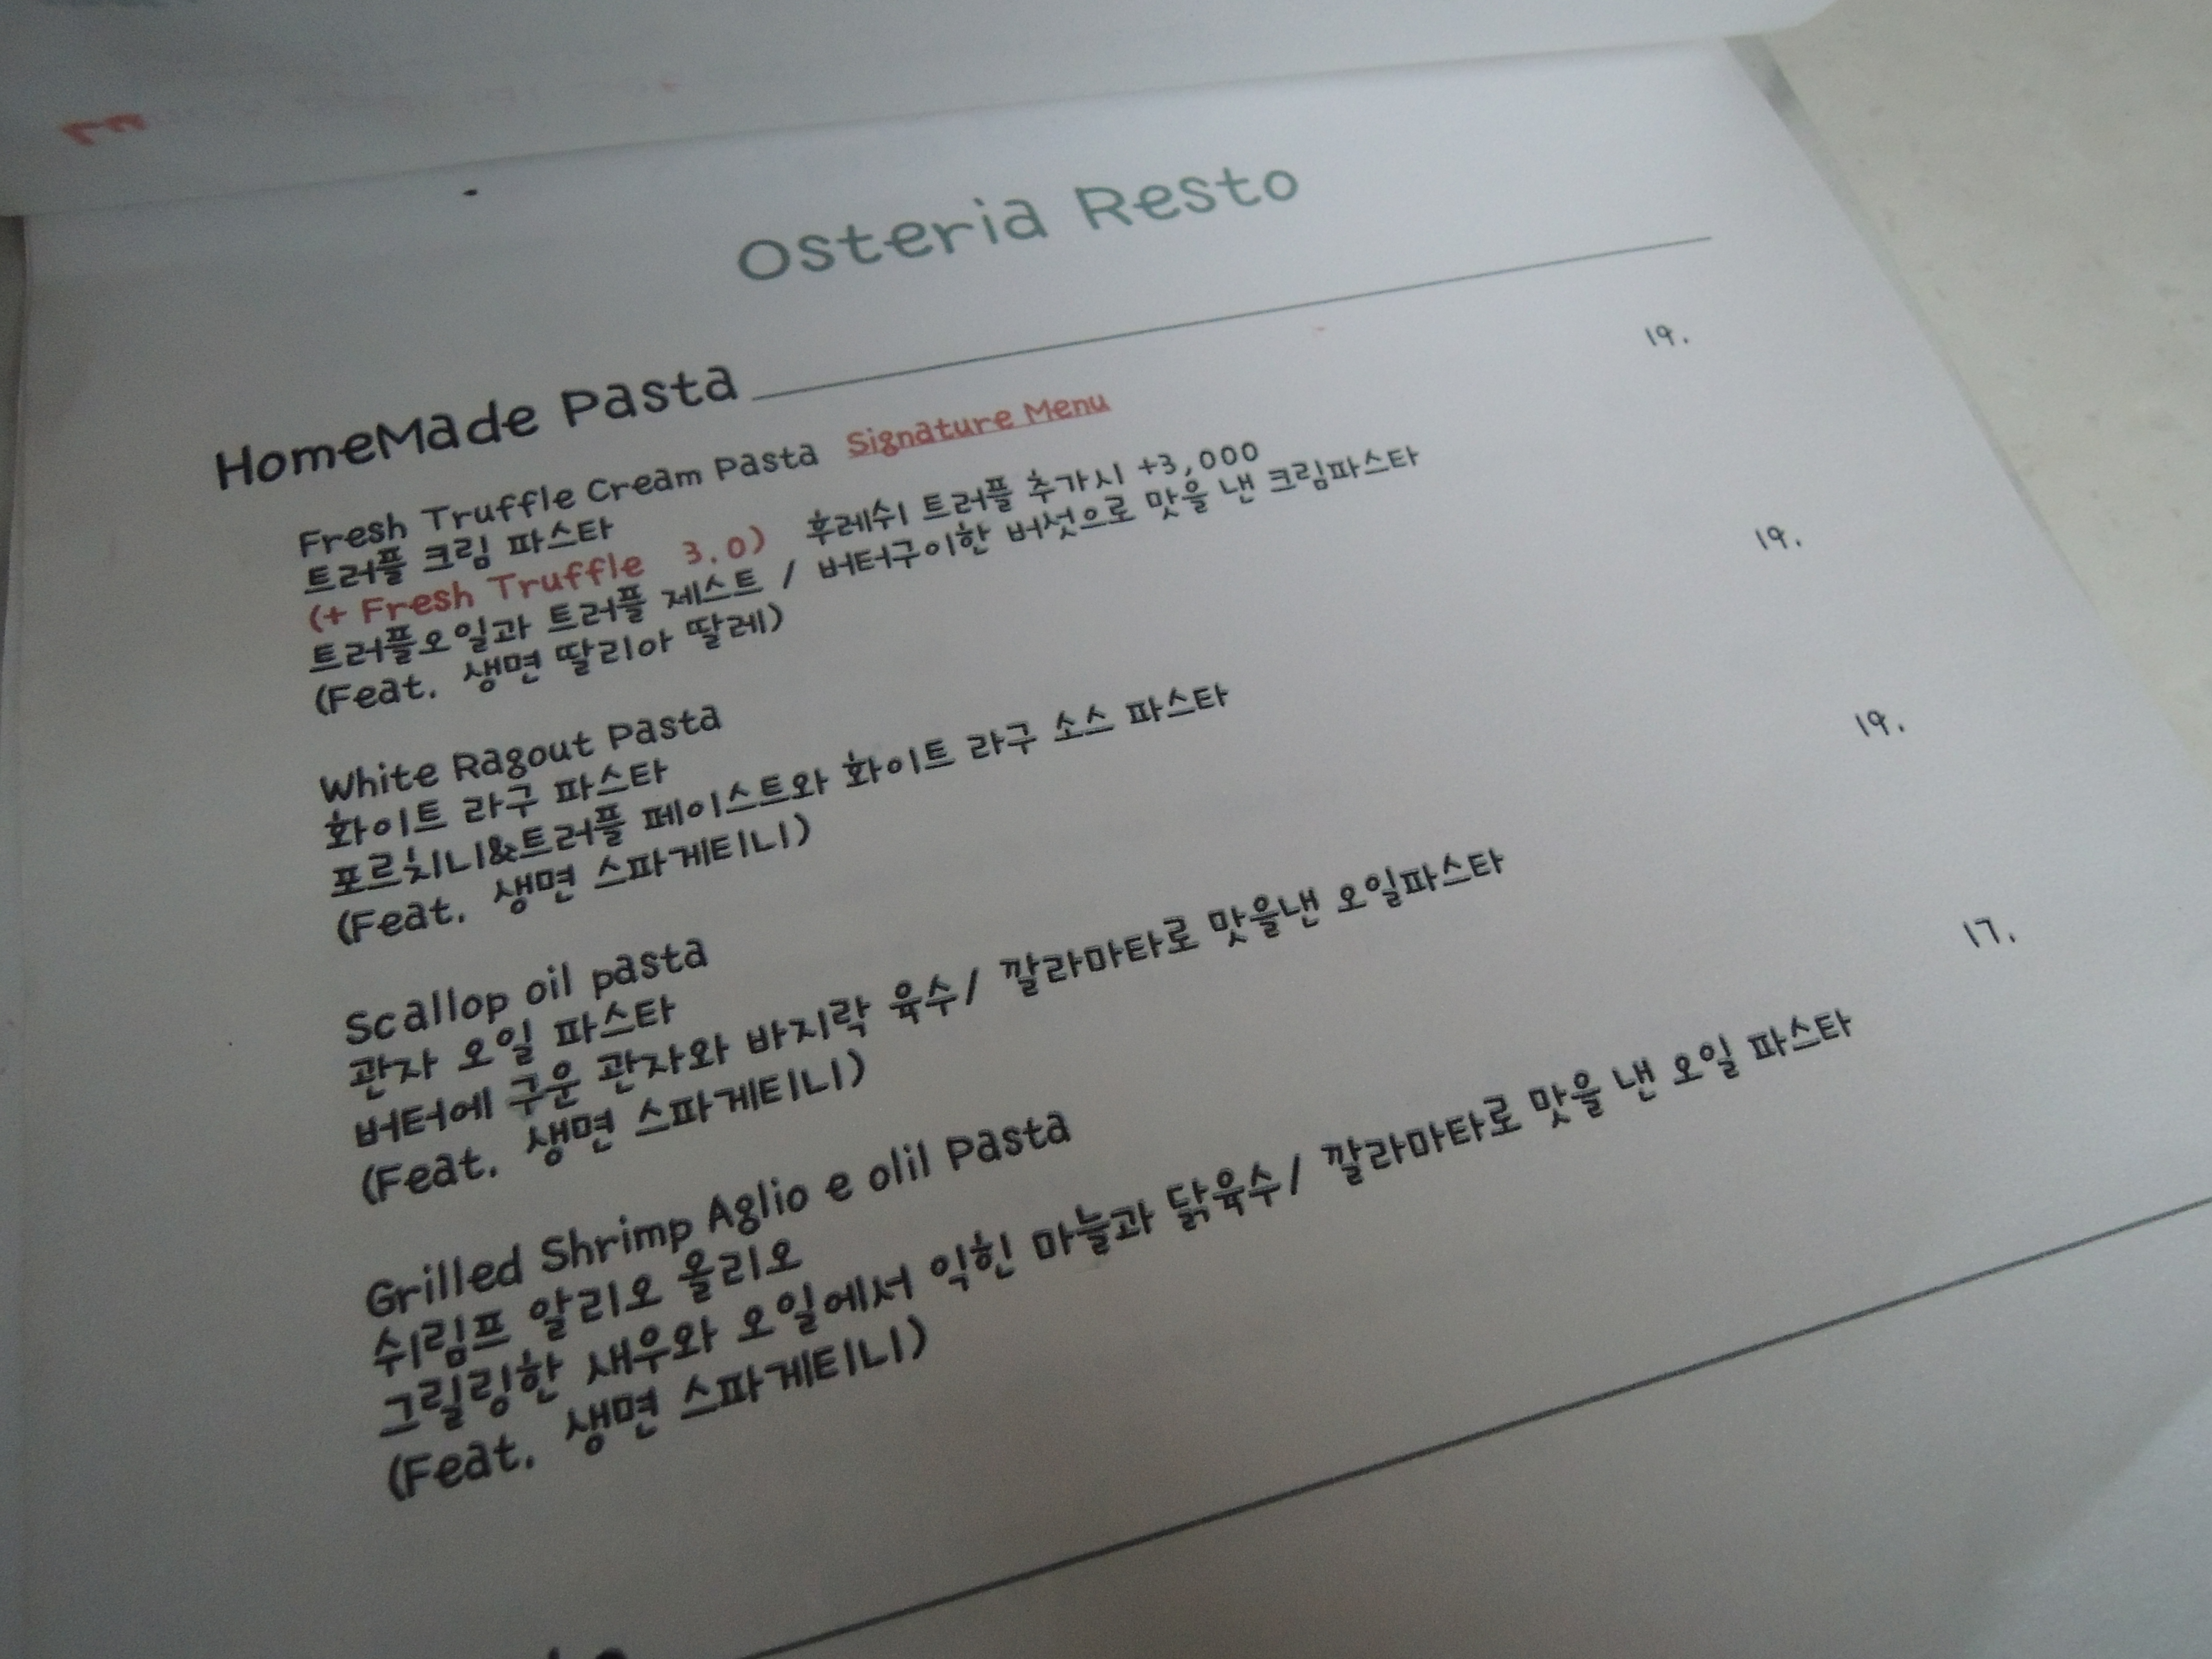 Osteria Resto
HomeMade Pasta
Fresh Truffle Cream Pasta Signature Menu 19.
트러플 크림 파스타
(+ Fresh Truffle 3.0) 후레쉬 트러플 추가시 +3,000
트러플오일과 트러플 제스트 / 버터구이한 버섯으로 맛을 낸 크림파스타
(Feat. 생면 딸리아 딸레)
White Ragout Pasta 19.
화이트 라구 파스타
포르치니&트러플 페이스트와 화이트 라구 소스 파스타
(Feat. 생면 스파게티니)
Scallop oil pasta 19.
관자 오일 파스타
버터에 구운 관자와 바지락 육수/ 깔라마타로 맛을낸 오일파스타
(Feat. 생면 스파게티니)
Grilled Shrimp Aglio e olil Pasta 17.
쉬림프 알리오 올리오
그릴링한 새우와 오일에서 익힌 마늘과 닭육수/ 깔라마타로 맛을 낸 오일 파스타
(Feat. 생면 스파게티니)